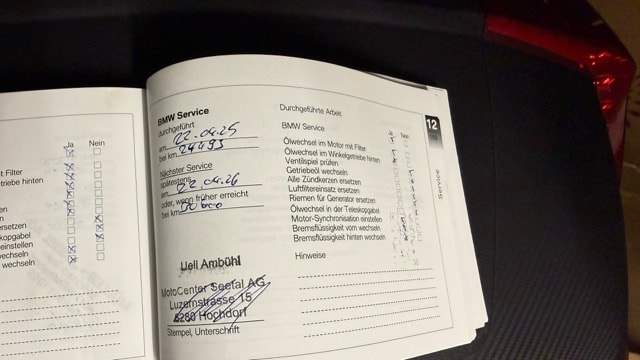 Ja Nein
mit Filter
getriebe hinten
rsetzen
kopgabel
einstellen
wechseln
wechseln
BMW Service
durchgeführt
am 22.04.25
bei km 24493
Nächster Service
spätestens
am 22.04.26
oder, wenn früher erreicht
bei km
Ueli Ambühl
MotoCenter Seetal AG
Luzernstrasse 15
6280 Hochdorf
Stempel, Unterschrift
Durchgeführte Arbeit
BMW Service
Ja Nein
Ölwechsel im Motor mit Filter
Ölwechsel im Winkelgetriebe hinten
Ventilspiel prüfen
Getriebeöl wechseln
Alle Zündkerzen ersetzen
Luftfiltereinsatz ersetzen
Riemen für Generator ersetzen
Ölwechsel in der Teleskopgabel
Motor-Synchronisation einstellen
Bremsflüssigkeit vorn wechseln
Bremsflüssigkeit hinten wechseln
Hinweise
12
Service